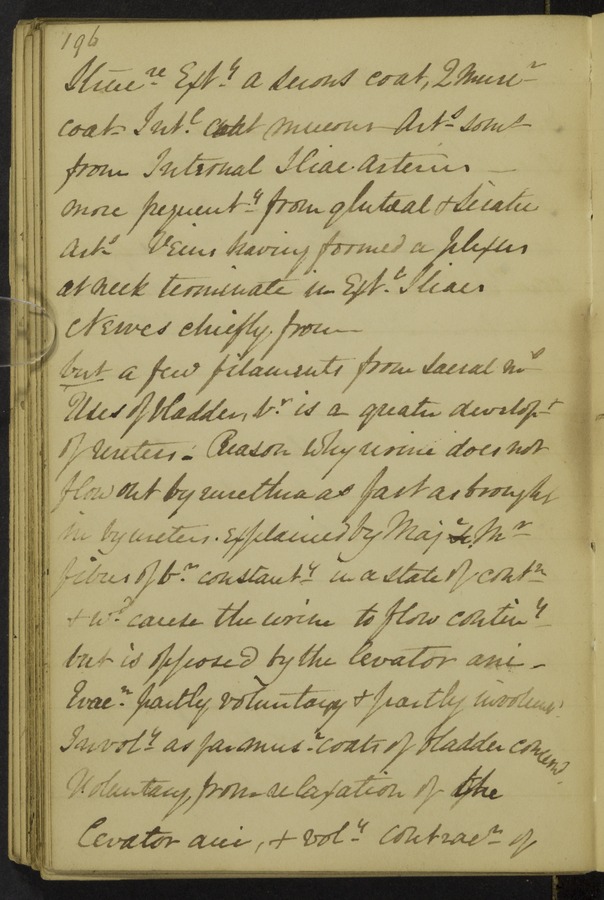 196
Struc^re Ext^y a serous coat, 2 Musc^r
coat - Int^l coat mucous - Art^s some
from Internal Iliac Arteries -
more frequent^y from glutaeal & sciatic
Art^s Veins having formed a plexus
at neck terminate in Ext^r Iliacs
Nerves chiefly from -
but a few filaments from sacral n^s
Uses of bladder, b^r is a greater develop^t
of ureters - Reason why urine does not
flow out by urethra as fast as brought
in by ureters. explained by Maj^r M^r
fibres of b^r constant^y in a state of cont^n
& w^d cause the urine to flow contin^y
but is opposed by the levator ani -
Evac^n partly voluntary & partly involun^y
Invol^y as far mus^r coats of bladder concern^d
Voluntary, from relaxation of the
levator ani, & vol^y contrac^n of